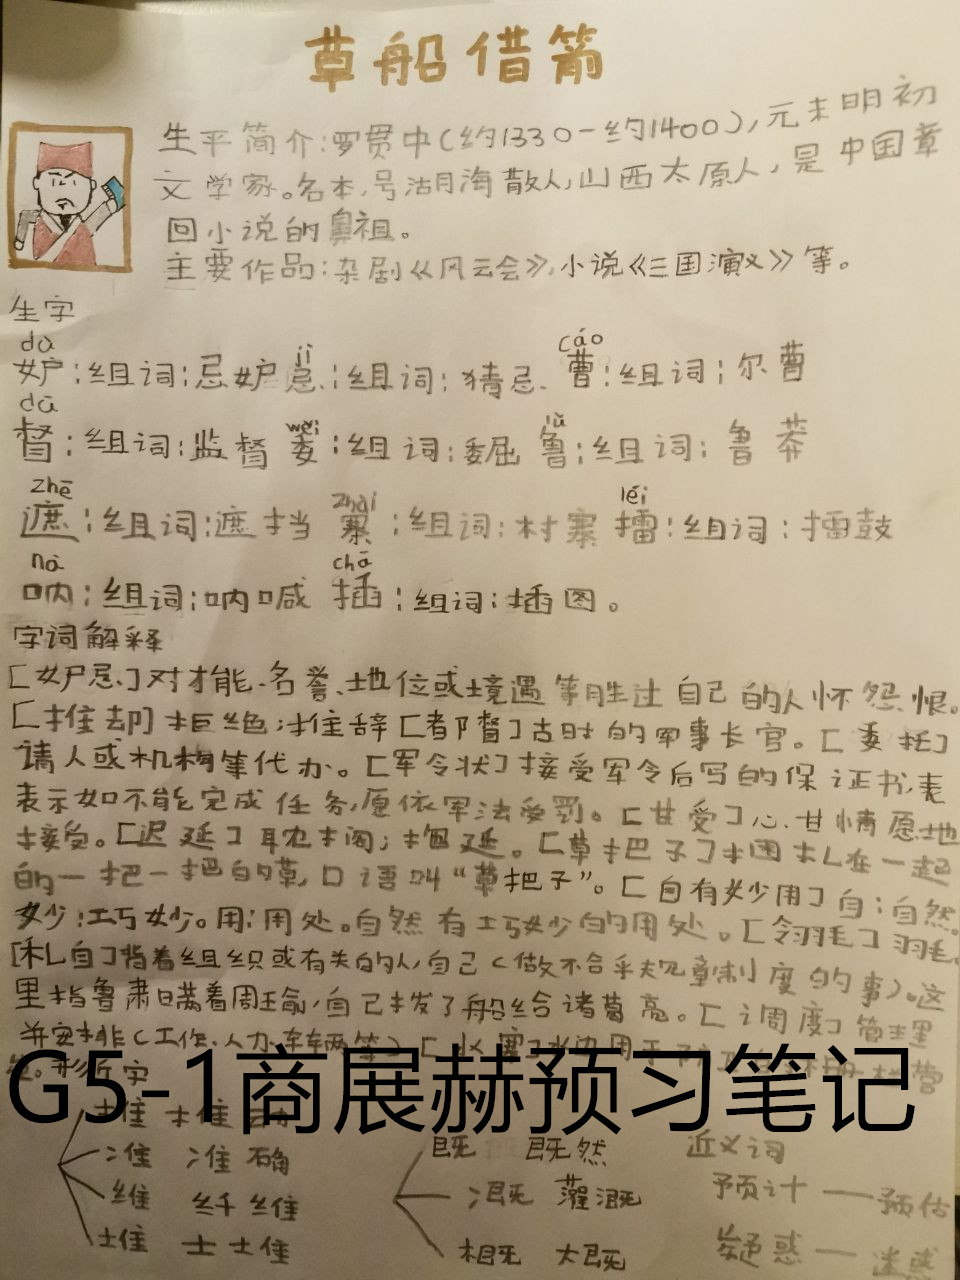 草船借箭
生平简介:罗贯中(约1330-约1400),元末明初
文学家。名本,号湖海散人,山西太原人,是中国章
回小说的鼻祖。
主要作品:杂剧《风云会》,小说《三国演义》等。
生字
dù
妒:组词:忌妒 忌:组词:猜忌. 曹:组词:尔曹
jì cáo
dū
督:组词:监督 委:组词:委屈 鲁:组词:鲁莽
wěi lǔ
zhē zhài léi
遮:组词:遮挡 寨:组词:村寨 擂:组词:擂鼓
nà chā
呐:组词:呐喊 插:组词:插图。
字词解释
[妒忌]对才能、名誉、地位或境遇等胜过自己的人怀怨恨。
[推却]拒绝;推辞[都督]古时的军事长官。[委托]
请人或机构等代办。[军令状]接受军令后写的保证书,表
表示如不能完成任务,愿依军法受罚。[甘受]心甘情愿地
接受。[迟延]耽搁;拖延。[草把子]捆扎在一起
的一把一把的草,口语叫“草把子”。[自有妙用]自:自然。
妙:巧妙。用:用处。自然有巧妙的用处。[翎毛]羽毛。
[私自]背着组织或有关的人,自己(做不合乎规章制度的事)。这
里指鲁肃瞒着周瑜,自己拨了船给诸葛亮。[调度]管理
并安排(工作、人力、车辆等)[水寨]水边用于防卫的
营
G5-1商展赫预习笔记
形近字
推 推
准 准确
维 纤维
堆 土堆
既 既然
溉 灌溉
概 大概
近义词
预计——预估
疑惑——迷惑